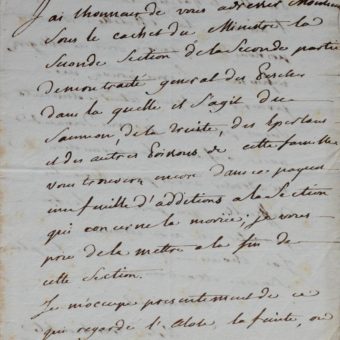 J'ai lhonneur de vous adresser Monsieur
sous le cachet du Ministre la
seconde Section de la seconde partie
de mon traité general des Pesches
dans la quelle il s'agit du
Saumon, de la Truite, des Eperlans
et des autres Poissons de cette famille
vous trouverez encore dans ce paquet
une feuille d'additions a la Section
qui concerne la morüe; je vous
prie de la mettre a la fin de
cette Section.
Je m'occupe presentement de ce
qui regarde l'Alose la feinte, ou